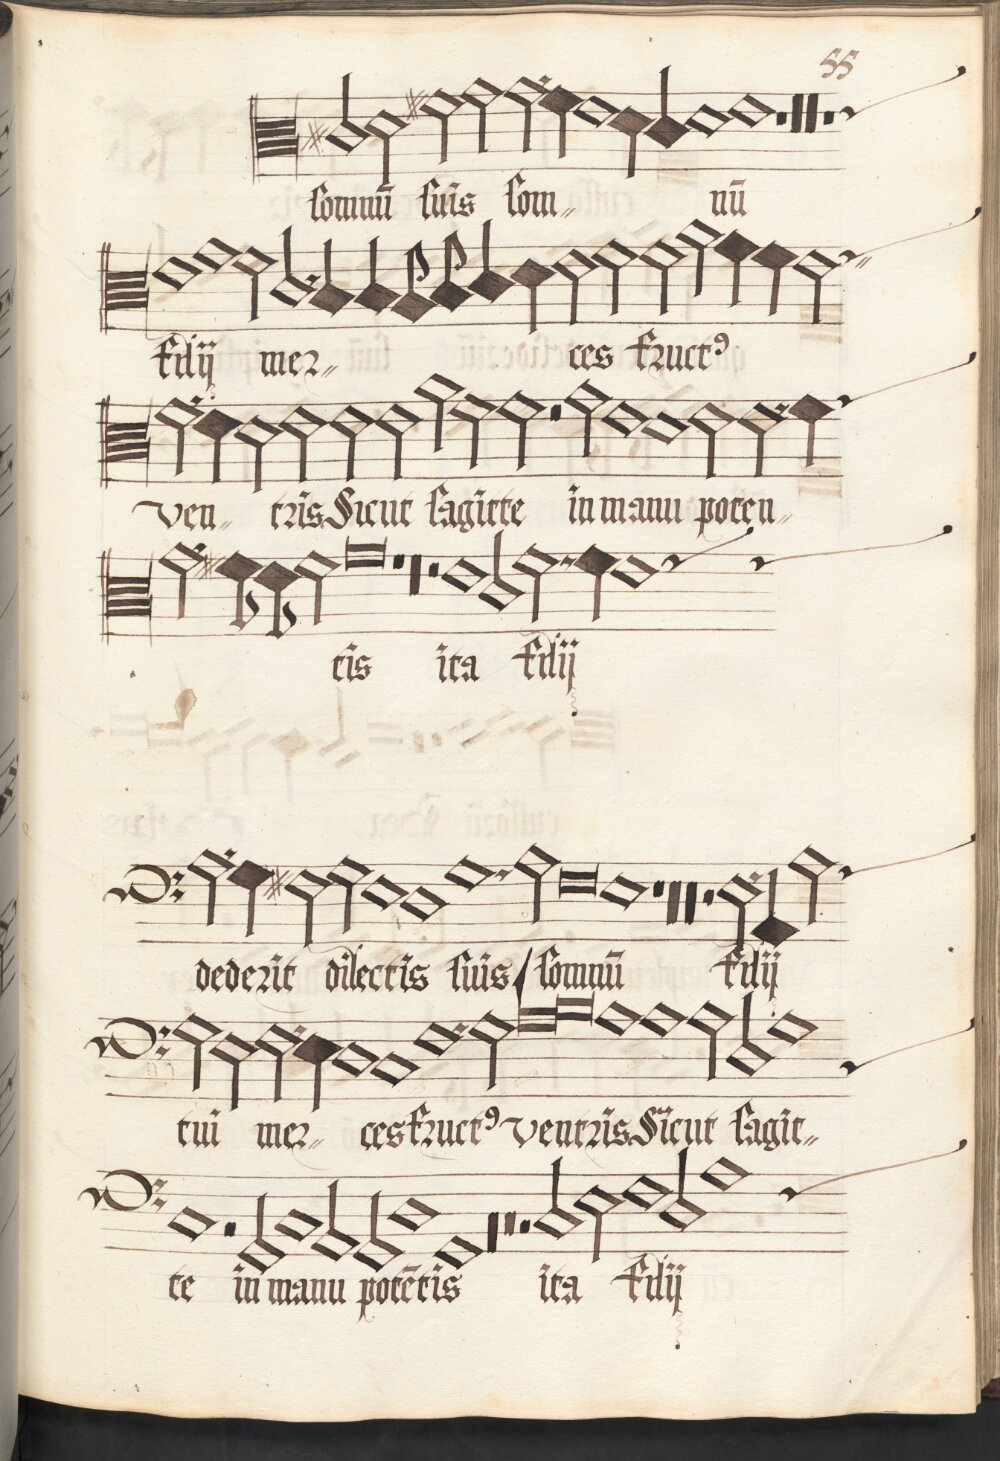 55
somnū suis som„ nū
Filij mer„ ces Fructꝰ
ven„ tris Sicut sagitte in manu poten„
tis ita Filij
dederit dilectis suis / somnū Filij
tui mer„ ces Fructꝰ ventris Sicut sagit„
te in manu potētis ita Filij